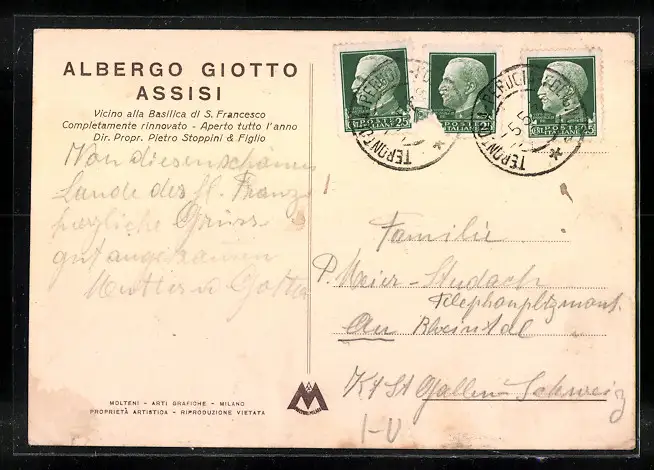 ALBERGO GIOTTO
ASSISI
Vicino alla Basilica di S. Francesco
Completamente rinnovato - Aperto tutto l'anno
Dir. Propr. Pietro Stoppini & Figlio
Von diesem schönen
Lande des hl. Franz
herzliche Grüsse
gut angekommen
Mutter u
POSTE
ITALIANE
25
POSTE
ITALIANE
25
POSTE
ITALIANE
25
Familie
P. Meier-Studach
Au Rheintal
Kt St Gallen Schweiz
I-V
MOLTENI - ARTI GRAFICHE - MILANO
PROPRIETÀ ARTISTICA - RIPRODUZIONE VIETATA